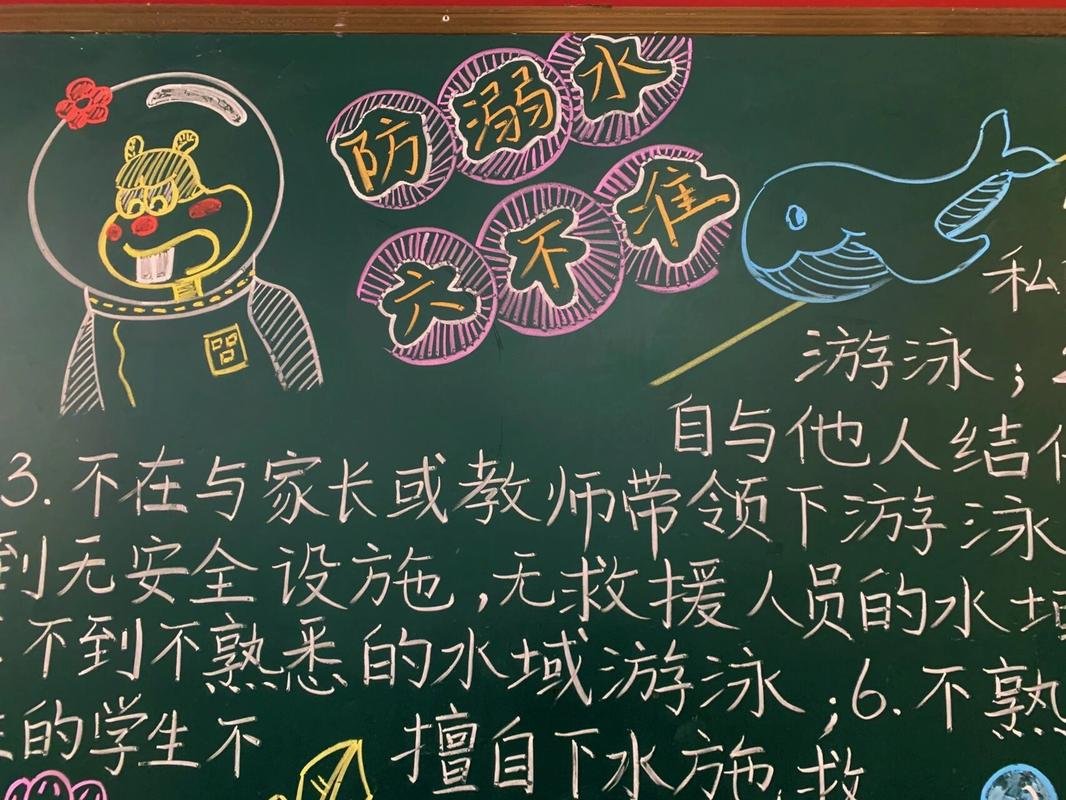 防溺水
六不准
私
游泳；2
自与他人结
3.不在与家长或教师带领下游泳
到无安全设施,无救援人员的水域
不到不熟悉的水域游泳;6.不熟
的学生不 擅自下水施救